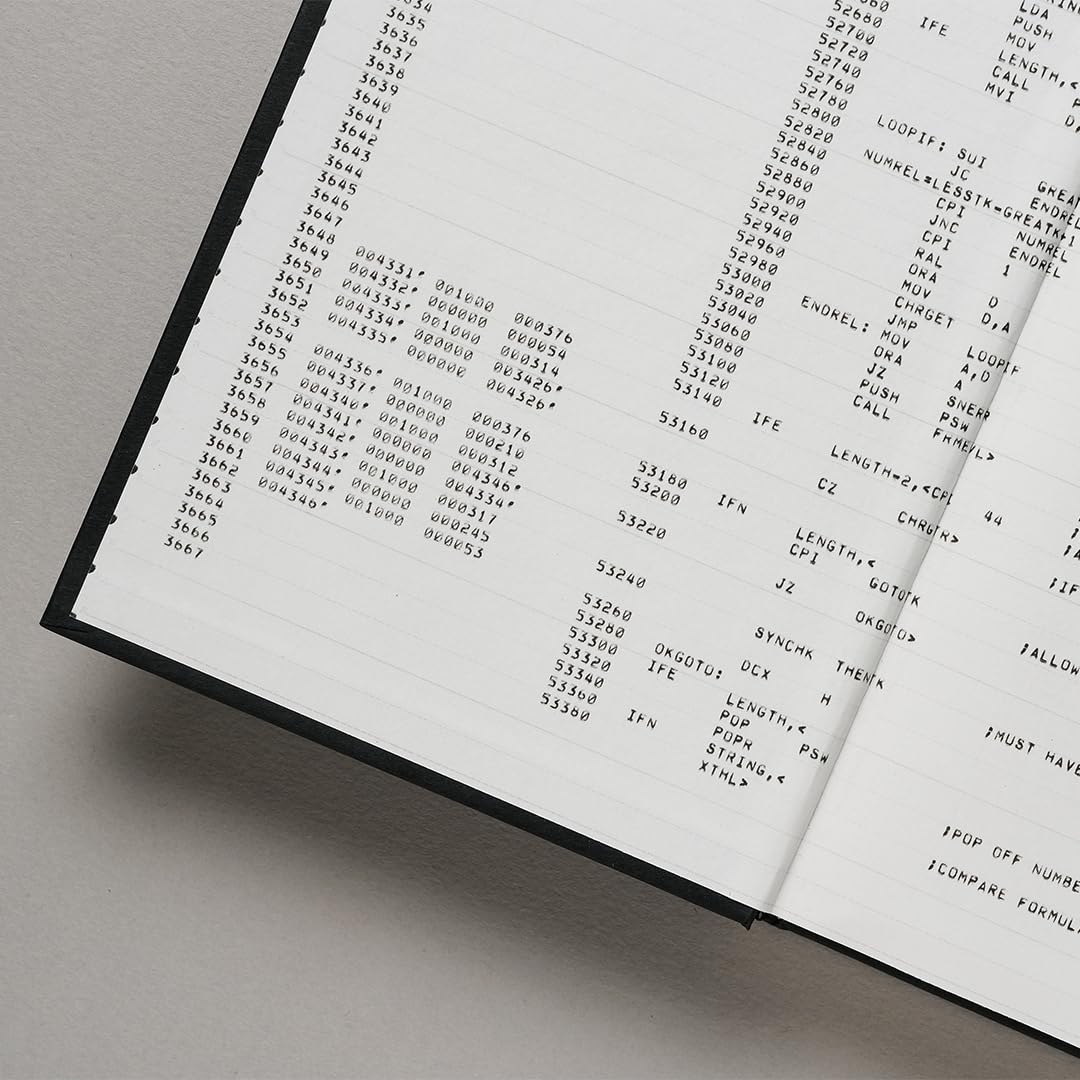 RIN
LDA
PUSH
MOV
52660
52680 IFE LENGTH,<
52700 CALL
52720 MVI D,
52740
52760
52780 LOOPIF: SUI GREAT
52800 JC ENDREL
52820 NUMREL=LESSTK-GREATK+1
52840 CPI NUMREL
3634 52860 JNC ENDREL
3635 52880 CPI 1
3636 52900 RAL
3637 52920 ORA D
3638 52940 MOV D,A
3639 52960 CHRGET
3640 52980 JMP LOOPIF
3641 53000 ENDREL: MOV A,D
3642 53020 ORA A
3643 53040 JZ SNERR
3644 53060 PUSH PSW
3645 53080 CALL FRMEVL>
3646 53100
3647 53120
3648 004331' 001000 000376 53140 IFE LENGTH=2,<CPI 44
3649 004332' 000000 000054
3650 004333' 001000 000314 53160 CZ CHRGTR>
3651 004334' 000000 003426'
3652 004335' 000000 004326'
3653 53180 IFN LENGTH,<
3654 004336' 001000 000376 53200 CPI GOTOTK ;IF
3655 004337' 000000 000210
3656 004340' 001000 000312 53220 JZ OKGOTO> ;ALLOW
3657 004341' 000000 004346'
3658 004342' 000000 004334'
3659 004343' 001000 000317 53240 SYNCHK THENTK ;MUST HAVE
3660 004344' 000000 000245
3661 004345' 53260
3662 004346' 001000 000053 53280 OKGOTO: DCX H
3663 53300 IFE LENGTH,<
3664 53320 POP PSW ;POP OFF NUMBE
3665 53340 POPR
3666 53360 IFN STRING,< ;COMPARE FORMUL
3667 53380 XTHL>